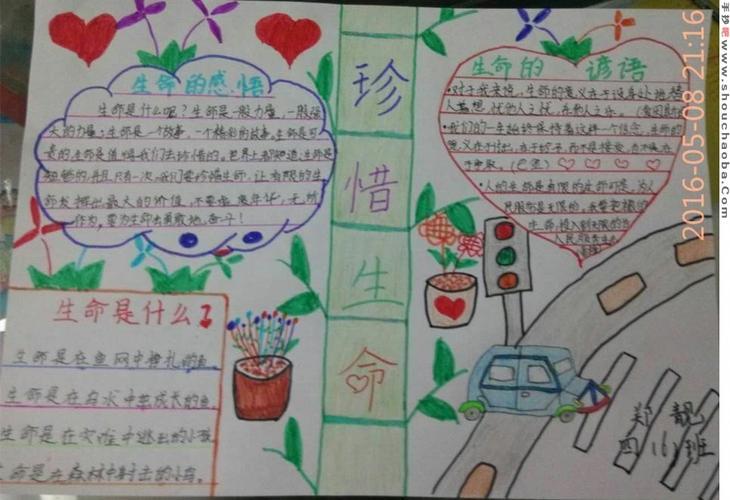 生命的感悟
生命是什么呢？生命是一股力量，一股强
大的力量；生命是一个故事，一个精彩的故事。生命是可
贵的，生命是值得我们去珍惜的。世界上都知道，生命是
短暂的，并且只有一次，我们要珍惜生命，让有限的生
命发挥出最大的价值，不要虚度年华，无所
作为，要为生命去勇敢地奋斗！
珍
惜
生
命
生命的 谚语
对于我来说，生命的意义在于设身处地替
人着想，忧他人之忧，乐他人之乐。（爱因斯坦
我们的一生始终保持着这样一个信念，生命的
意义在于付出，在于给予，而不是接受，也不是在
于争取。（巴金）
人的生命是有限的，
民服务是无限的，我要把有限的
生命，投入到无限的为
人民服务
生命是什么？
生命是在鱼网中挣扎的鱼。
生命是在
生命是在灾难中逃出的小孩
命是在森林中射击的小鸟。
郑靓
四（6）班
2016-05-08 21:16
手抄吧 www.shouchaoba.com